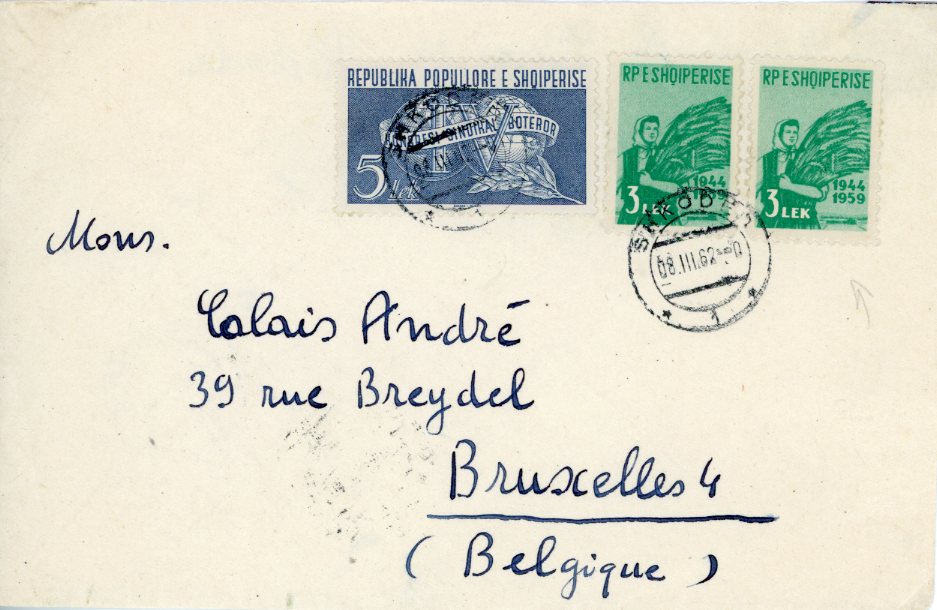 REPUBLIKA POPULLORE E SHQIPERISE
SINDIKAL BOTEROR
5
RP E SHQIPERISE
1944
1959
3 LEK
RP E SHQIPERISE
1944
1959
3 LEK
SHKODER
1
SHKODER
08.III.62
1
Mons.
Calais André
39 rue Breydel
Bruxelles 4
(Belgique)